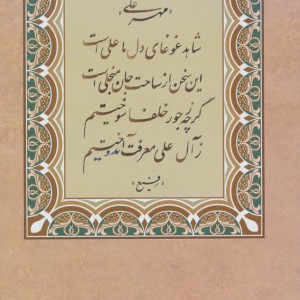 «مهر علی»
شاهد غوغای دل ما علی است
این سخن از ساحت جان منجلی است
گرچه ز جور خلفا سوختیم
ز آل علی معرفت آموختیم
«رفیع»